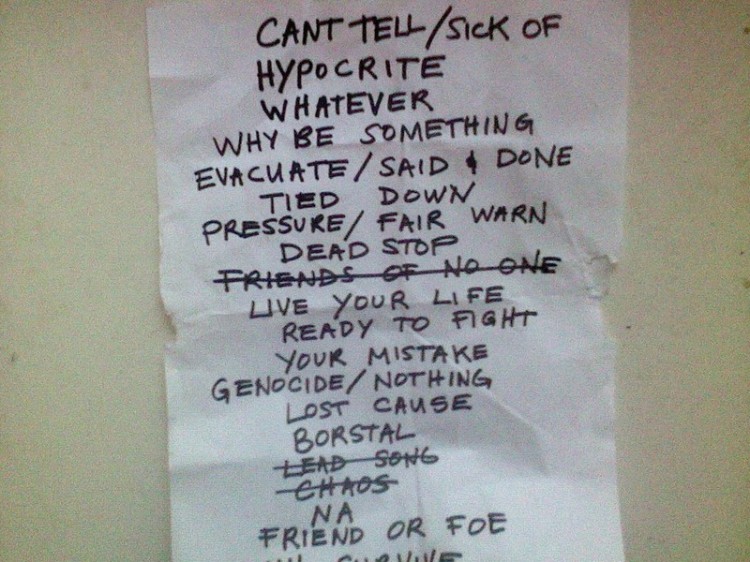 CANT TELL/SICK OF
HYPOCRITE
WHATEVER
WHY BE SOMETHING
EVACUATE/SAID & DONE
TIED DOWN
PRESSURE/ FAIR WARN
DEAD STOP
FRIENDS OF NO ONE
LIVE YOUR LIFE
READY TO FIGHT
YOUR MISTAKE
GENOCIDE/NOTHING
LOST CAUSE
BORSTAL
LEAD SONG
CHAOS
NA
FRIEND OR FOE
SURVIVE